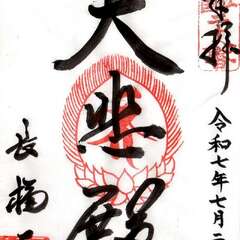 奉拝
令和七年七月二
大悲殿
長福